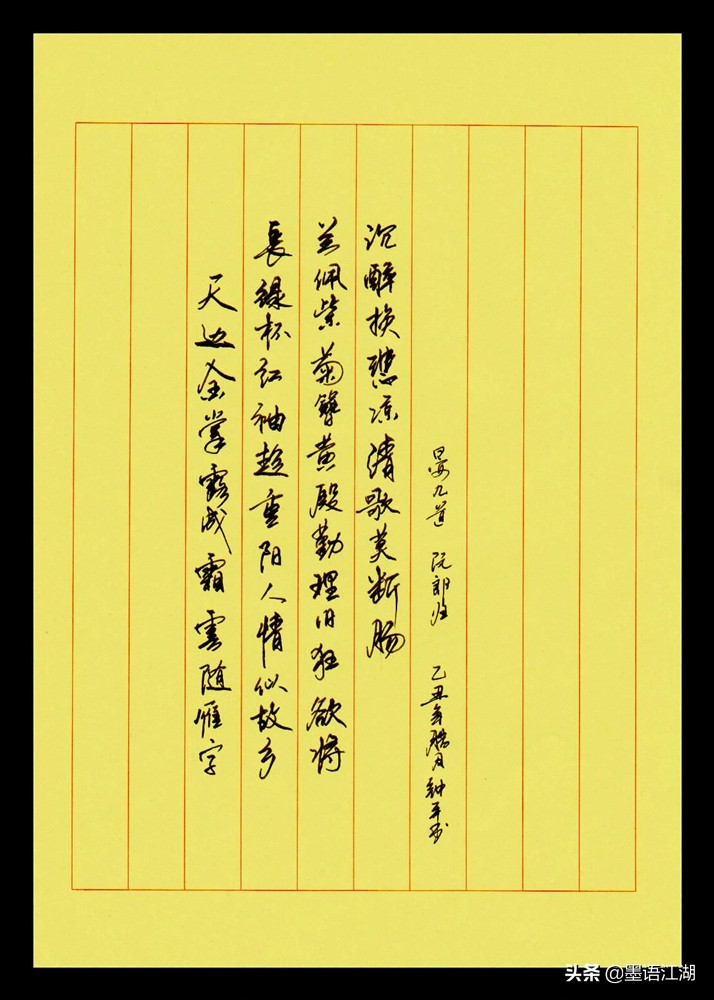 天边金掌露成霜雲随雁字
長绿杯红袖趁重阳人情似故乡
兰佩紫菊簪黄殷勤理旧狂欲将
沉醉换悲凉清歌莫断肠
晏几道 阮郎归 乙丑年腊月钟平书
头条 @墨语江湖